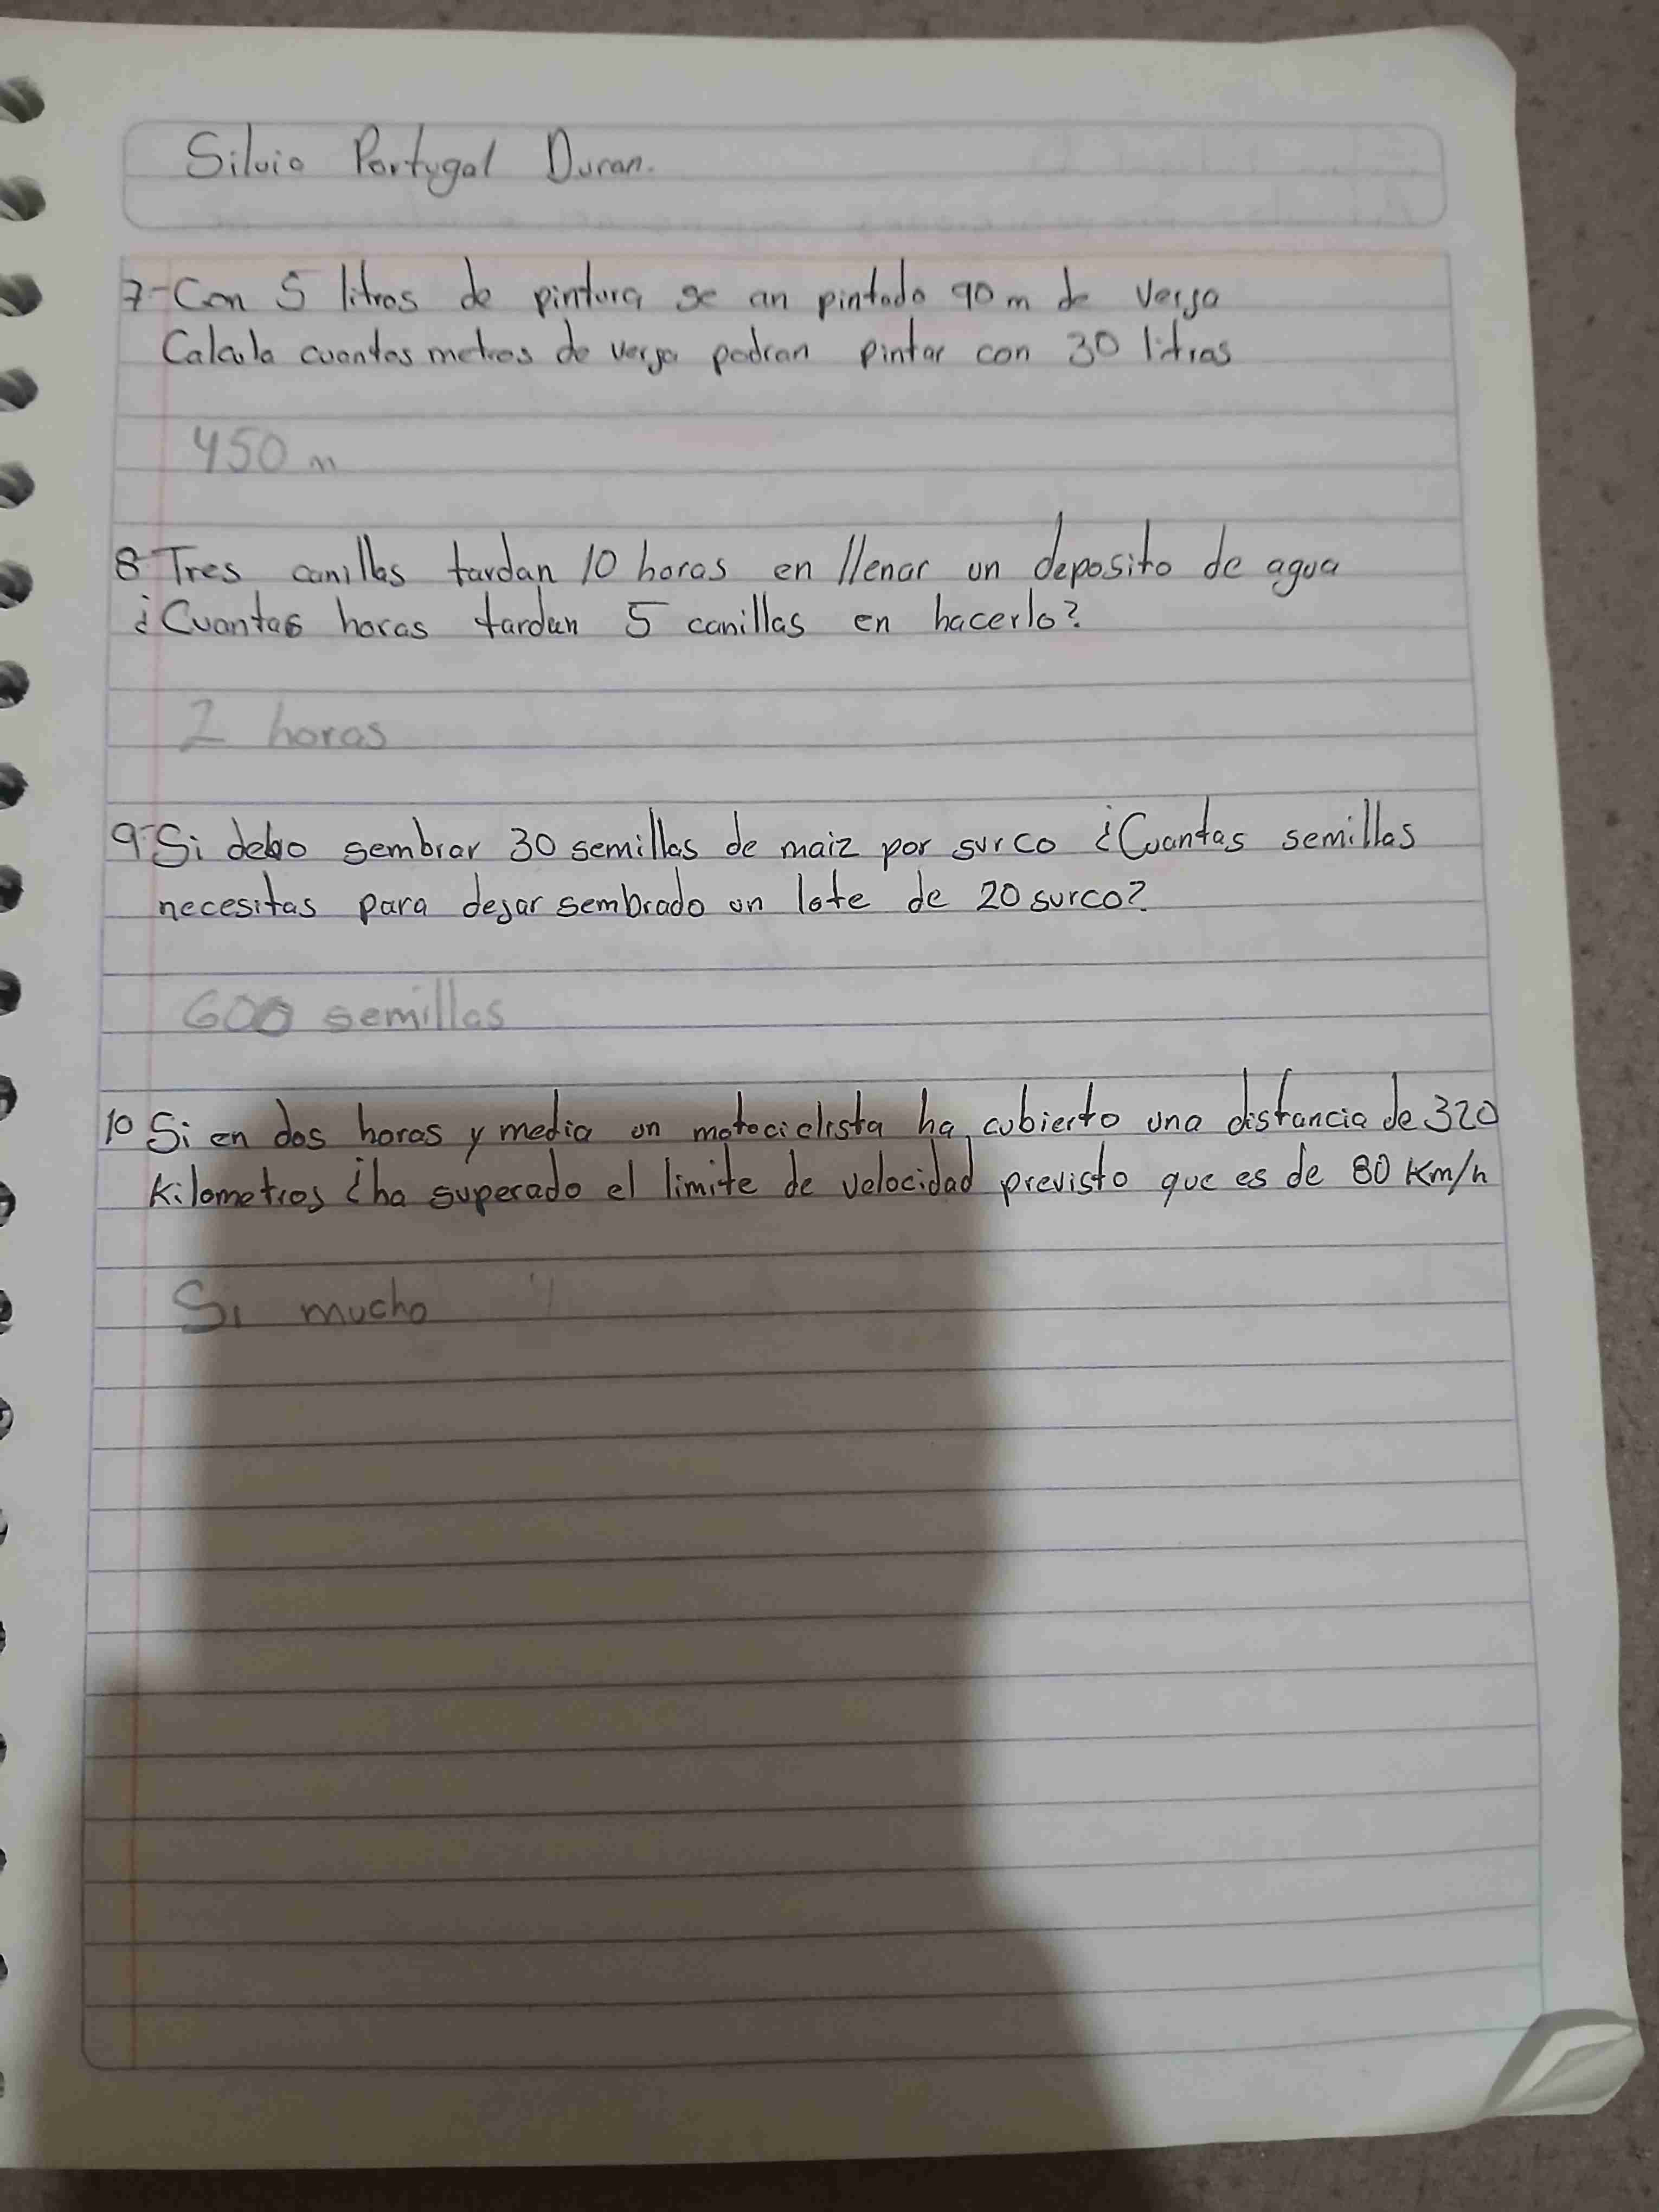 Silvio Portugal Duran.
7-Con 5 litros de pintura se an pintado 90 m de verja
Calcula cuantos metros de verja podran pintar con 30 litros
450 m
8-Tres canillas tardan 10 horas en llenar un deposito de agua
¿Cuantas horas tardan 5 canillas en hacerlo?
2 horas
9-Si debo sembrar 30 semillas de maiz por surco ¿Cuantas semillas
necesitas para dejar sembrado un lote de 20 surco?
600 semillas
10 Si en dos horas y media un motociclista ha cubierto una distancia de 320
Kilometros ¿ha superado el limite de velocidad previsto que es de 80 Km/h
Si mucho